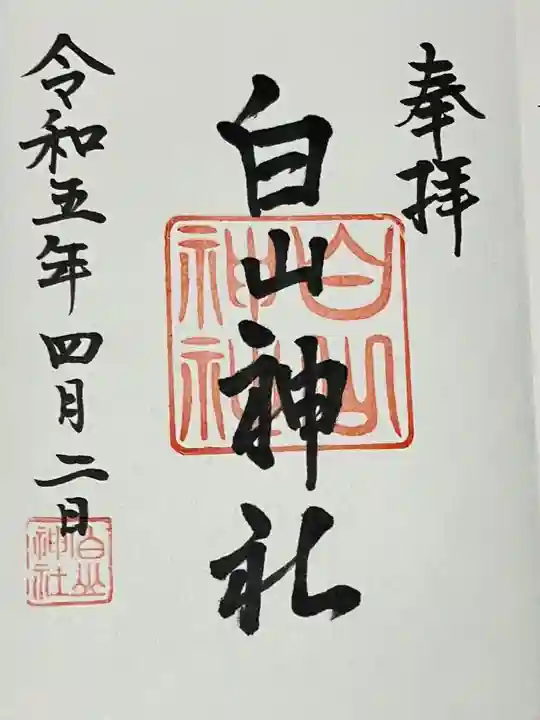 奉拝
白山神社
令和五年四月二日
白山
神社